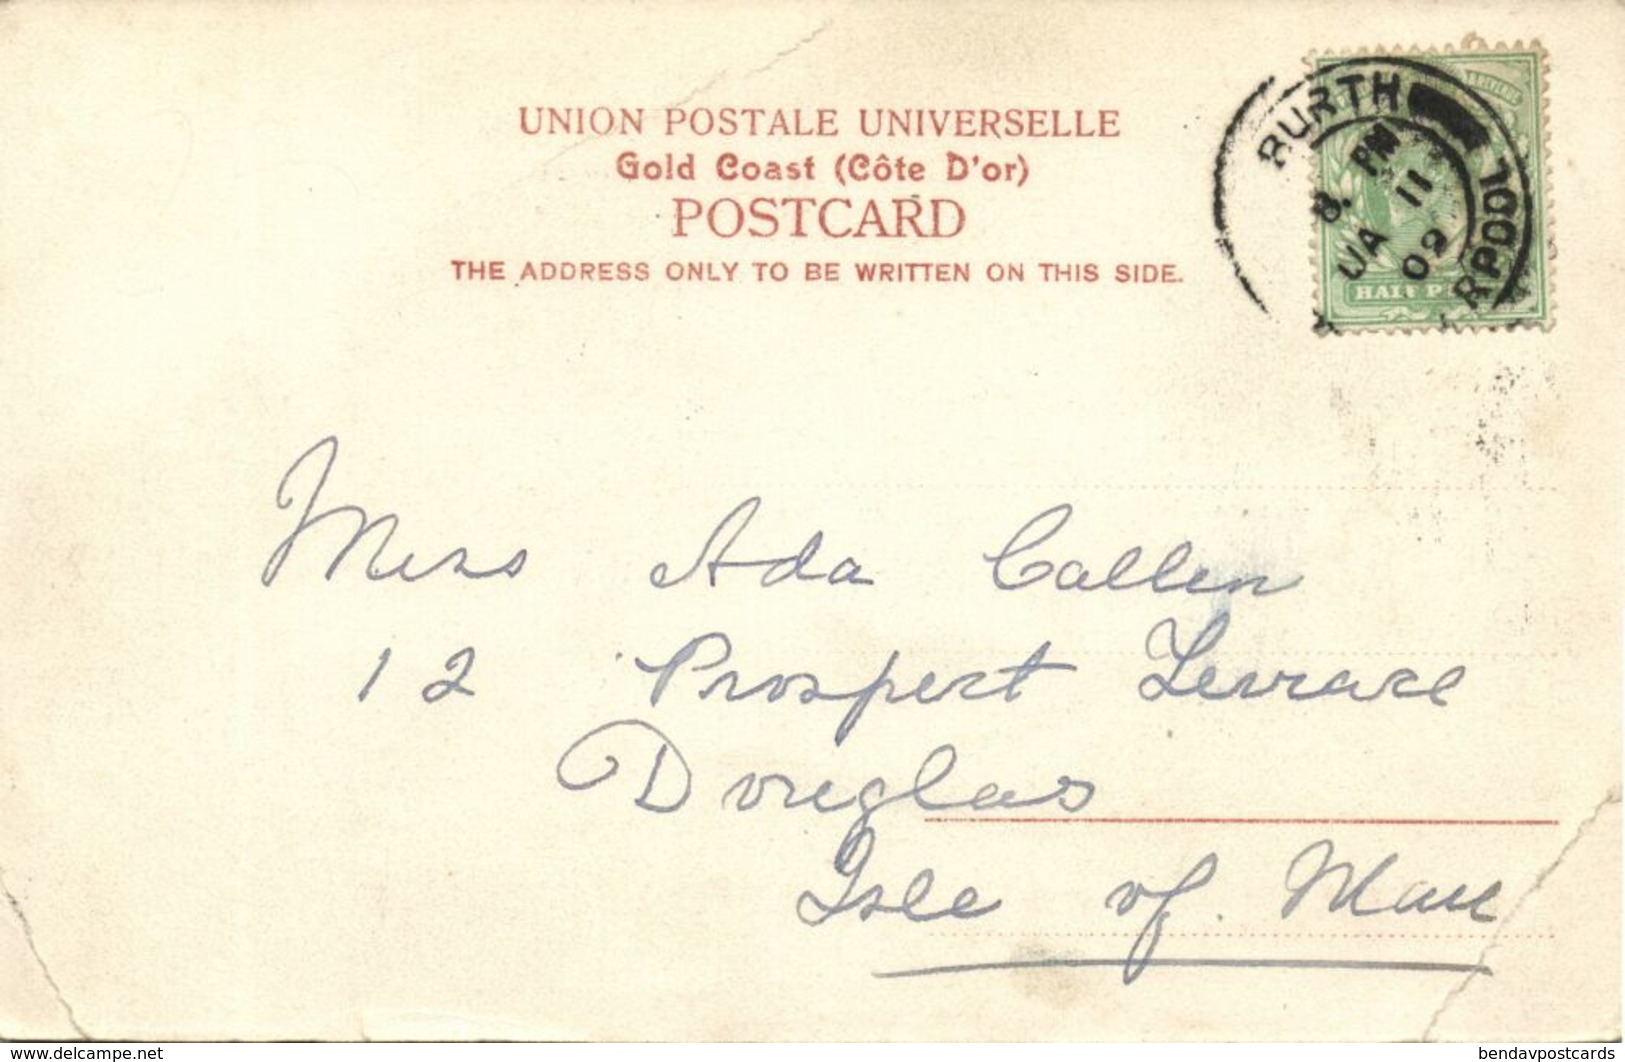 UNION POSTALE UNIVERSELLE
Gold Coast (Côte D'or)
POSTCARD
THE ADDRESS ONLY TO BE WRITTEN ON THIS SIDE.
BURTH
RPOOL
8. PM
JA 11
09
HALF P
Miss Ada Callen
12 Prospect Terrace
Douglas
Isle of Man
www.delcampe.net
bendavpostcards